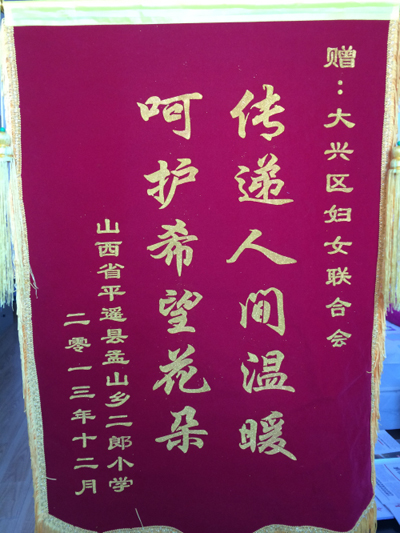 赠：大兴区妇女联合会
传递人间温暖
呵护希望花朵
山西省平遥县孟山乡二郎小学
二零一三年十二月